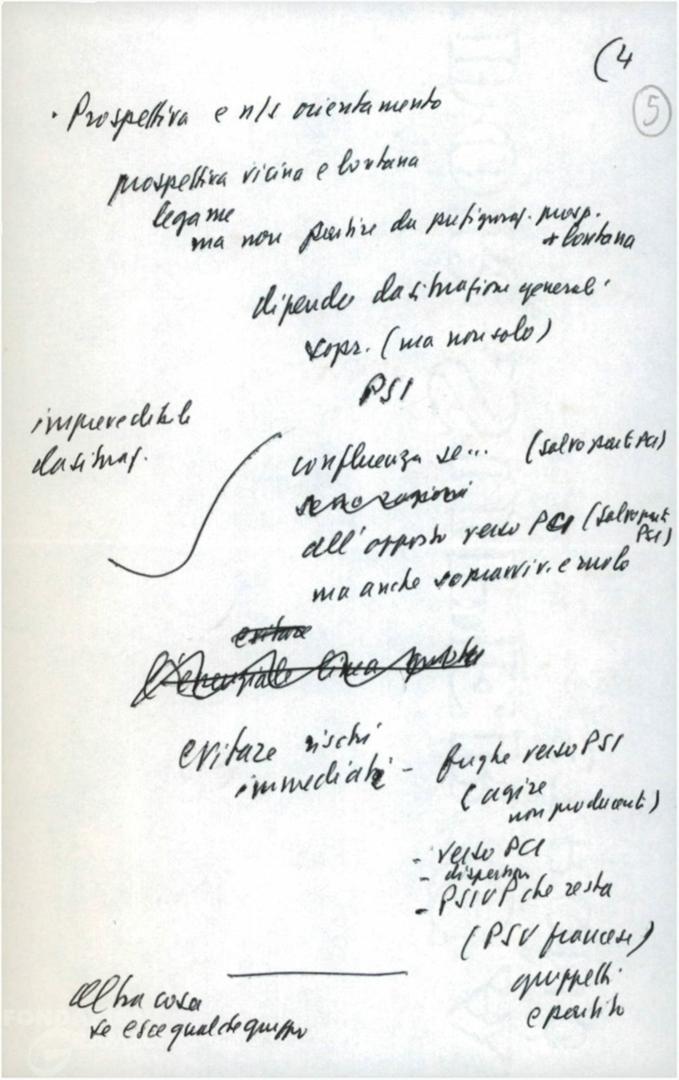 (4
5
· Prospettiva e n/s orientamento
prospettiva vicina e lontana
legame
ma non partire da prefiguraz. prosp.
+ lontana
dipende da situazione generale
sopr. (ma non solo)
PSI
imprevedibile
da situaz.
confluenza se... (salvo parte PCI)
all'opposto verso PCI (salvo parte
PSI)
ma anche sopravviv. e ruolo
evitare
l'essenziale linea questa
evitare rischi
immediati - fughe verso PSI
(agire
non producenti)
- verso PCI
- dispersion
- PSIUP che resta
(PSU francese)
gruppetti
e partito
altra cosa
se esce qualche gruppo
FOND